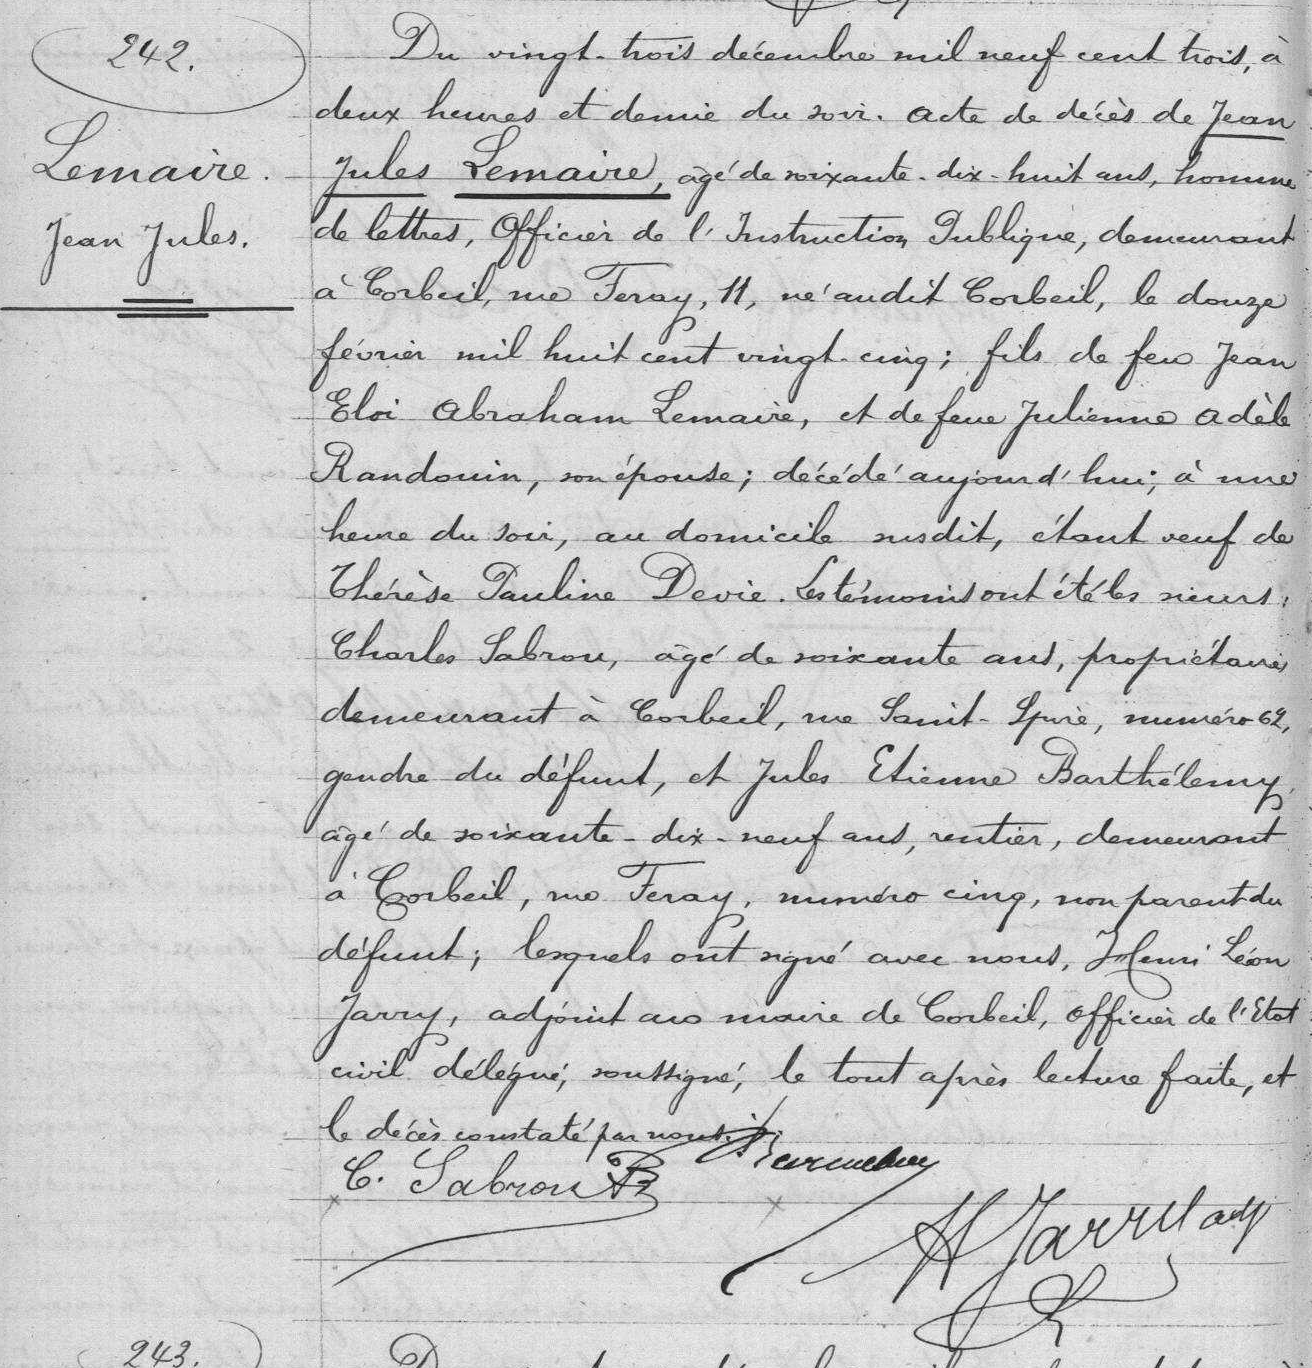 242.
Lemaire.
Jean Jules.
Du vingt-trois décembre mil neuf cent trois, à
deux heures et demie du soir. Acte de décès de Jean
Jules Lemaire, âgé de soixante-dix-huit ans, homme
de lettres, Officier de l'Instruction Publique, demeurant
à Corbeil, rue Feray, 11, né audit Corbeil, le douze
février mil huit cent vingt-cinq; fils de feu Jean
Eloi Abraham Lemaire, et de feue Julienne Adèle
Randouin, son épouse; décédé aujourd'hui; à une
heure du soir, au domicile susdit, étant veuf de
Thérèse Pauline Devie. Les témoins ont été les sieurs:
Charles Sabrou, âgé de soixante ans, propriétaire
demeurant à Corbeil, rue Saint-Spire, numéro 62,
gendre du défunt, et Jules Etienne Barthélemy,
âgé de soixante-dix-neuf ans, rentier, demeurant
à Corbeil, rue Feray, numéro cinq, non parent du
défunt; lesquels ont signé avec nous, Henri Léon
Jarry, adjoint au maire de Corbeil, Officier de l'Etat
civil délégué, soussigné, le tout après lecture faite, et
le décès constaté par nous.
C. Sabrou
H Jarry adj
243.